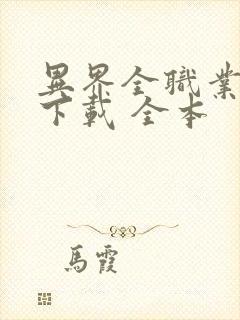 異界全職業
下載 全本
馬霞